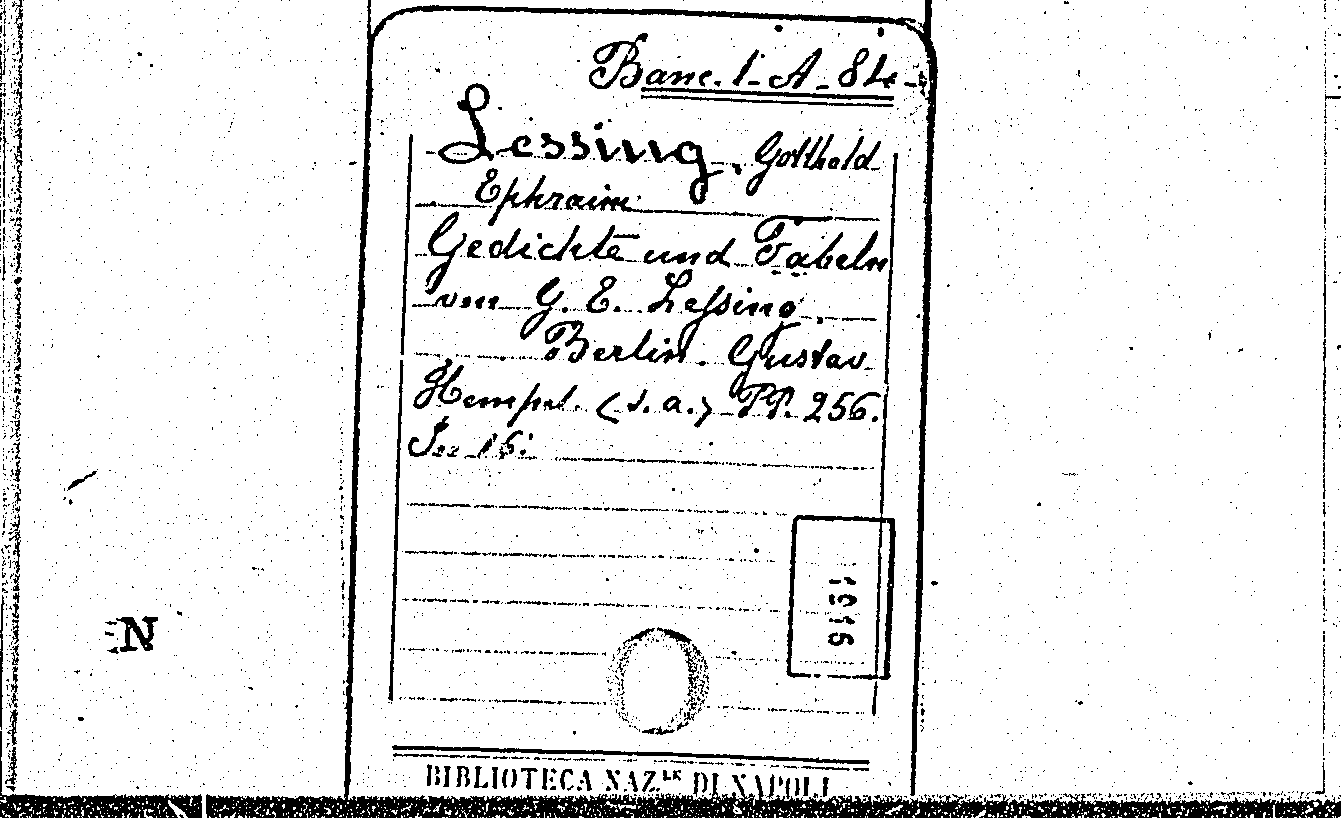 Banc. 1-A-84-
Lessing, Gotthold
Ephraim
Gedichte und Fabeln
von G. E. Leſsing.
Berlin. Gustav
Hempel. (s.a.) PP. 256.
In 16:
N
BIBLIOTECA NAZ.LE DI NAPOLI